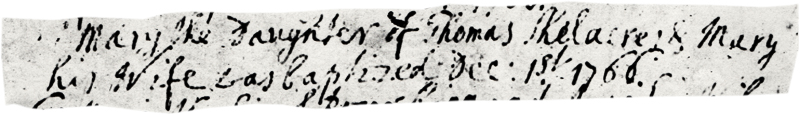 Mary the Daughter of Thomas Shelacres & Mary
his Wife was baptized Dec: 1st 1766.